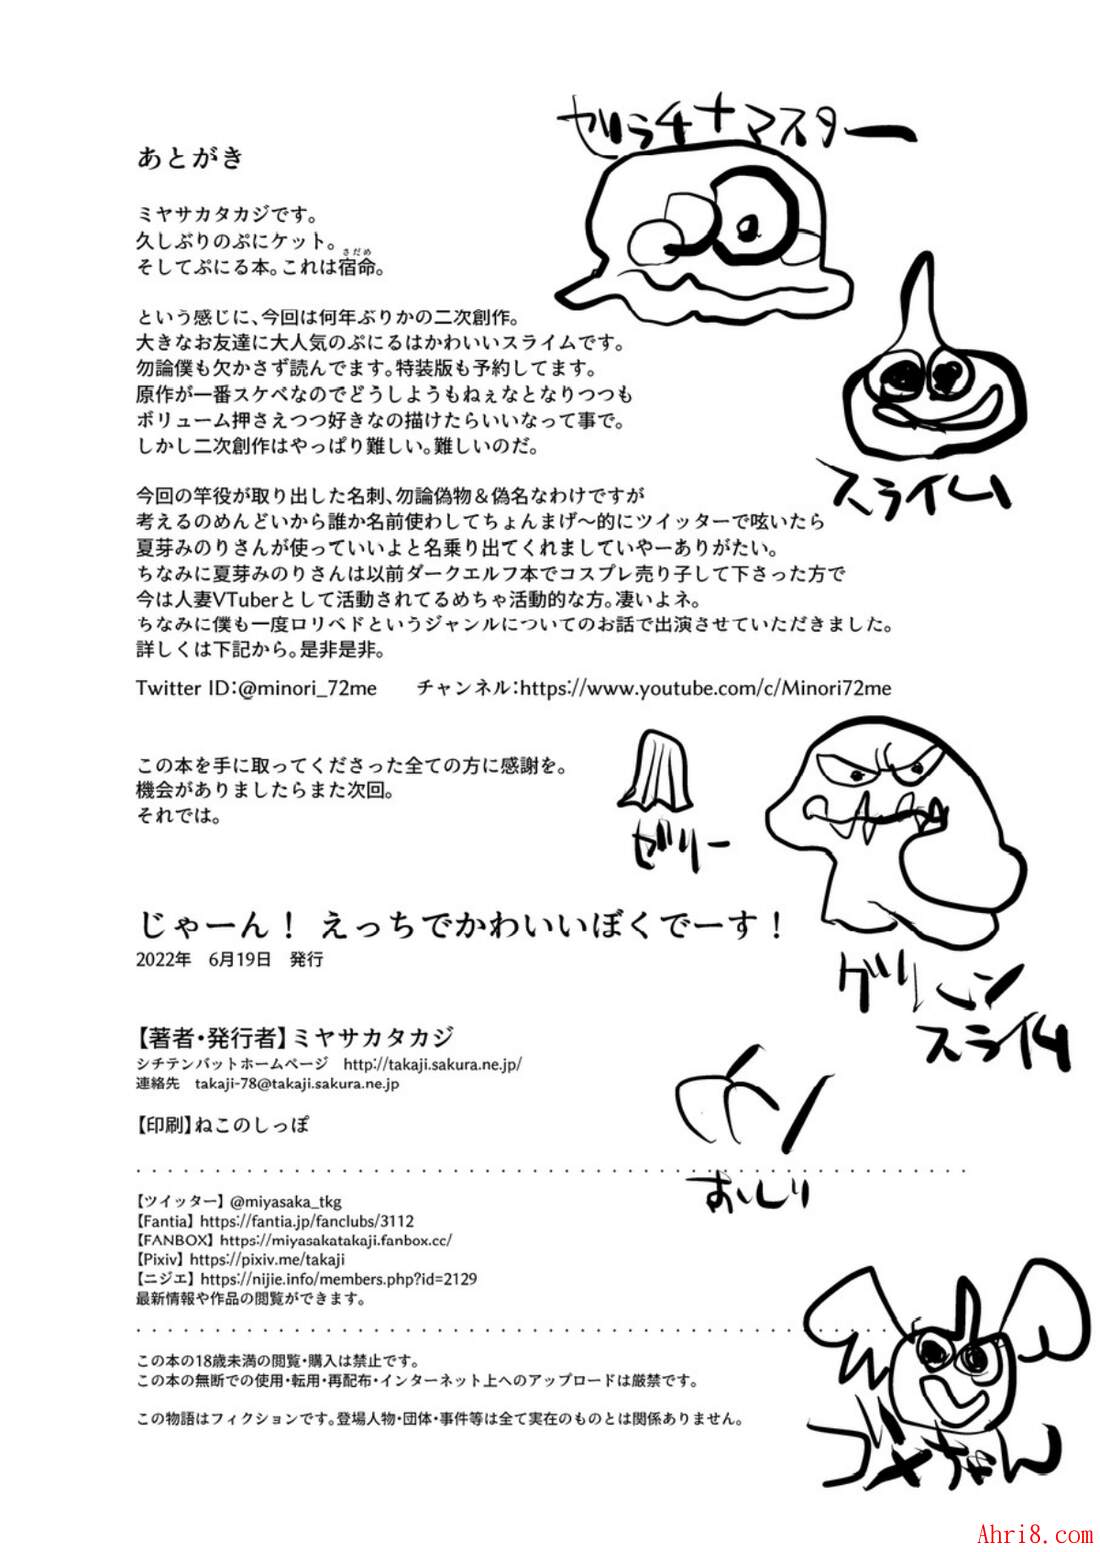 セリラチナマスター
あとがき
ミヤサカタカジです。
久しぶりのぷにケット。
そしてぷにる本。これは宿命。
さだめ
という感じに、今回は何年ぶりかの二次創作。
大きなお友達に大人気のぷにるはかわいいスライムです。
勿論僕も欠かさず読んでます。特装版も予約してます。
原作が一番スケベなのでどうしようもねぇなとなりつつも
ボリューム押さえつつ好きなの描けたらいいなって事で。
しかし二次創作はやっぱり難しい。難しいのだ。
スライム
今回の竿役が取り出した名刺、勿論偽物＆偽名なわけですが
考えるのめんどいから誰か名前使わしてちょんまげ〜的にツイッターで呟いたら
夏芽みのりさんが使っていいよと名乗り出てくれましていやーありがたい。
ちなみに夏芽みのりさんは以前ダークエルフ本でコスプレ売り子して下さった方で
今は人妻VTuberとして活動されてるめちゃ活動的な方。凄いよネ。
ちなみに僕も一度ロリベドというジャンルについてのお話で出演させていただきました。
詳しくは下記から。是非是非。
Twitter ID:@minori_72me　チャンネル:https://www.youtube.com/c/Minori72me
この本を手に取ってくださった全ての方に感謝を。
機会がありましたらまた次回。
それでは。
ゼリー
じゃーん！ えっちでかわいいぼくでーす！
2022年　6月19日　発行
グリーン
スライム
【著者・発行者】ミヤサカタカジ
シチテンバットホームページ　http://takaji.sakura.ne.jp/
連絡先　takaji-78@takaji.sakura.ne.jp
【印刷】ねこのしっぽ
おしり
【ツイッター】@miyasaka_tkg
【Fantia】https://fantia.jp/fanclubs/3112
【FANBOX】https://miyasakatakaji.fanbox.cc/
【Pixiv】https://pixiv.me/takaji
【ニジエ】https://nijie.info/members.php?id=2129
最新情報や作品の閲覧ができます。
この本の18歳未満の閲覧・購入は禁止です。
この本の無断での使用・転用・再配布・インターネット上へのアップロードは厳禁です。
この物語はフィクションです。登場人物・団体・事件等は全て実在のものとは関係ありません。
ゴメちゃん
Ahri8.com